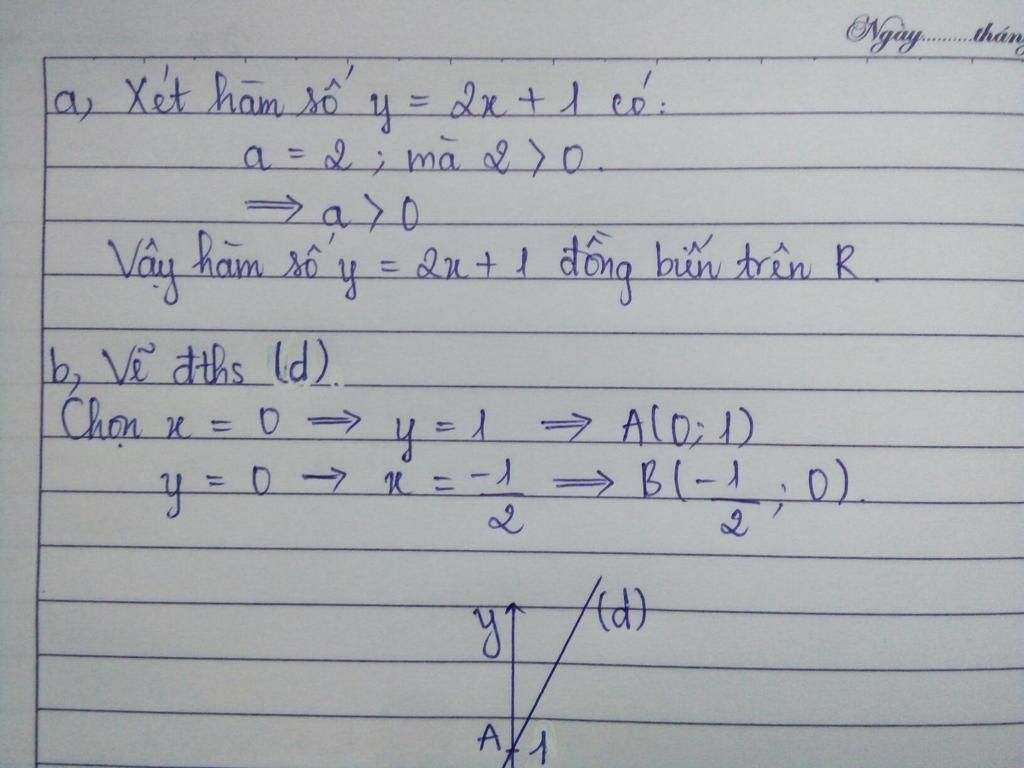 Ngày..........tháng
a, Xét hàm số y = 2x + 1 có:
a = 2 ; mà 2 > 0.
⟹ a > 0
Vậy hàm số y = 2x + 1 đồng biến trên R.
b, Vẽ đths (d).
Chọn x = 0 ⟹ y = 1 ⟹ A(0; 1)
y = 0 → x = -1/2 ⟹ B(-1/2 ; 0).
y (d)
A 1